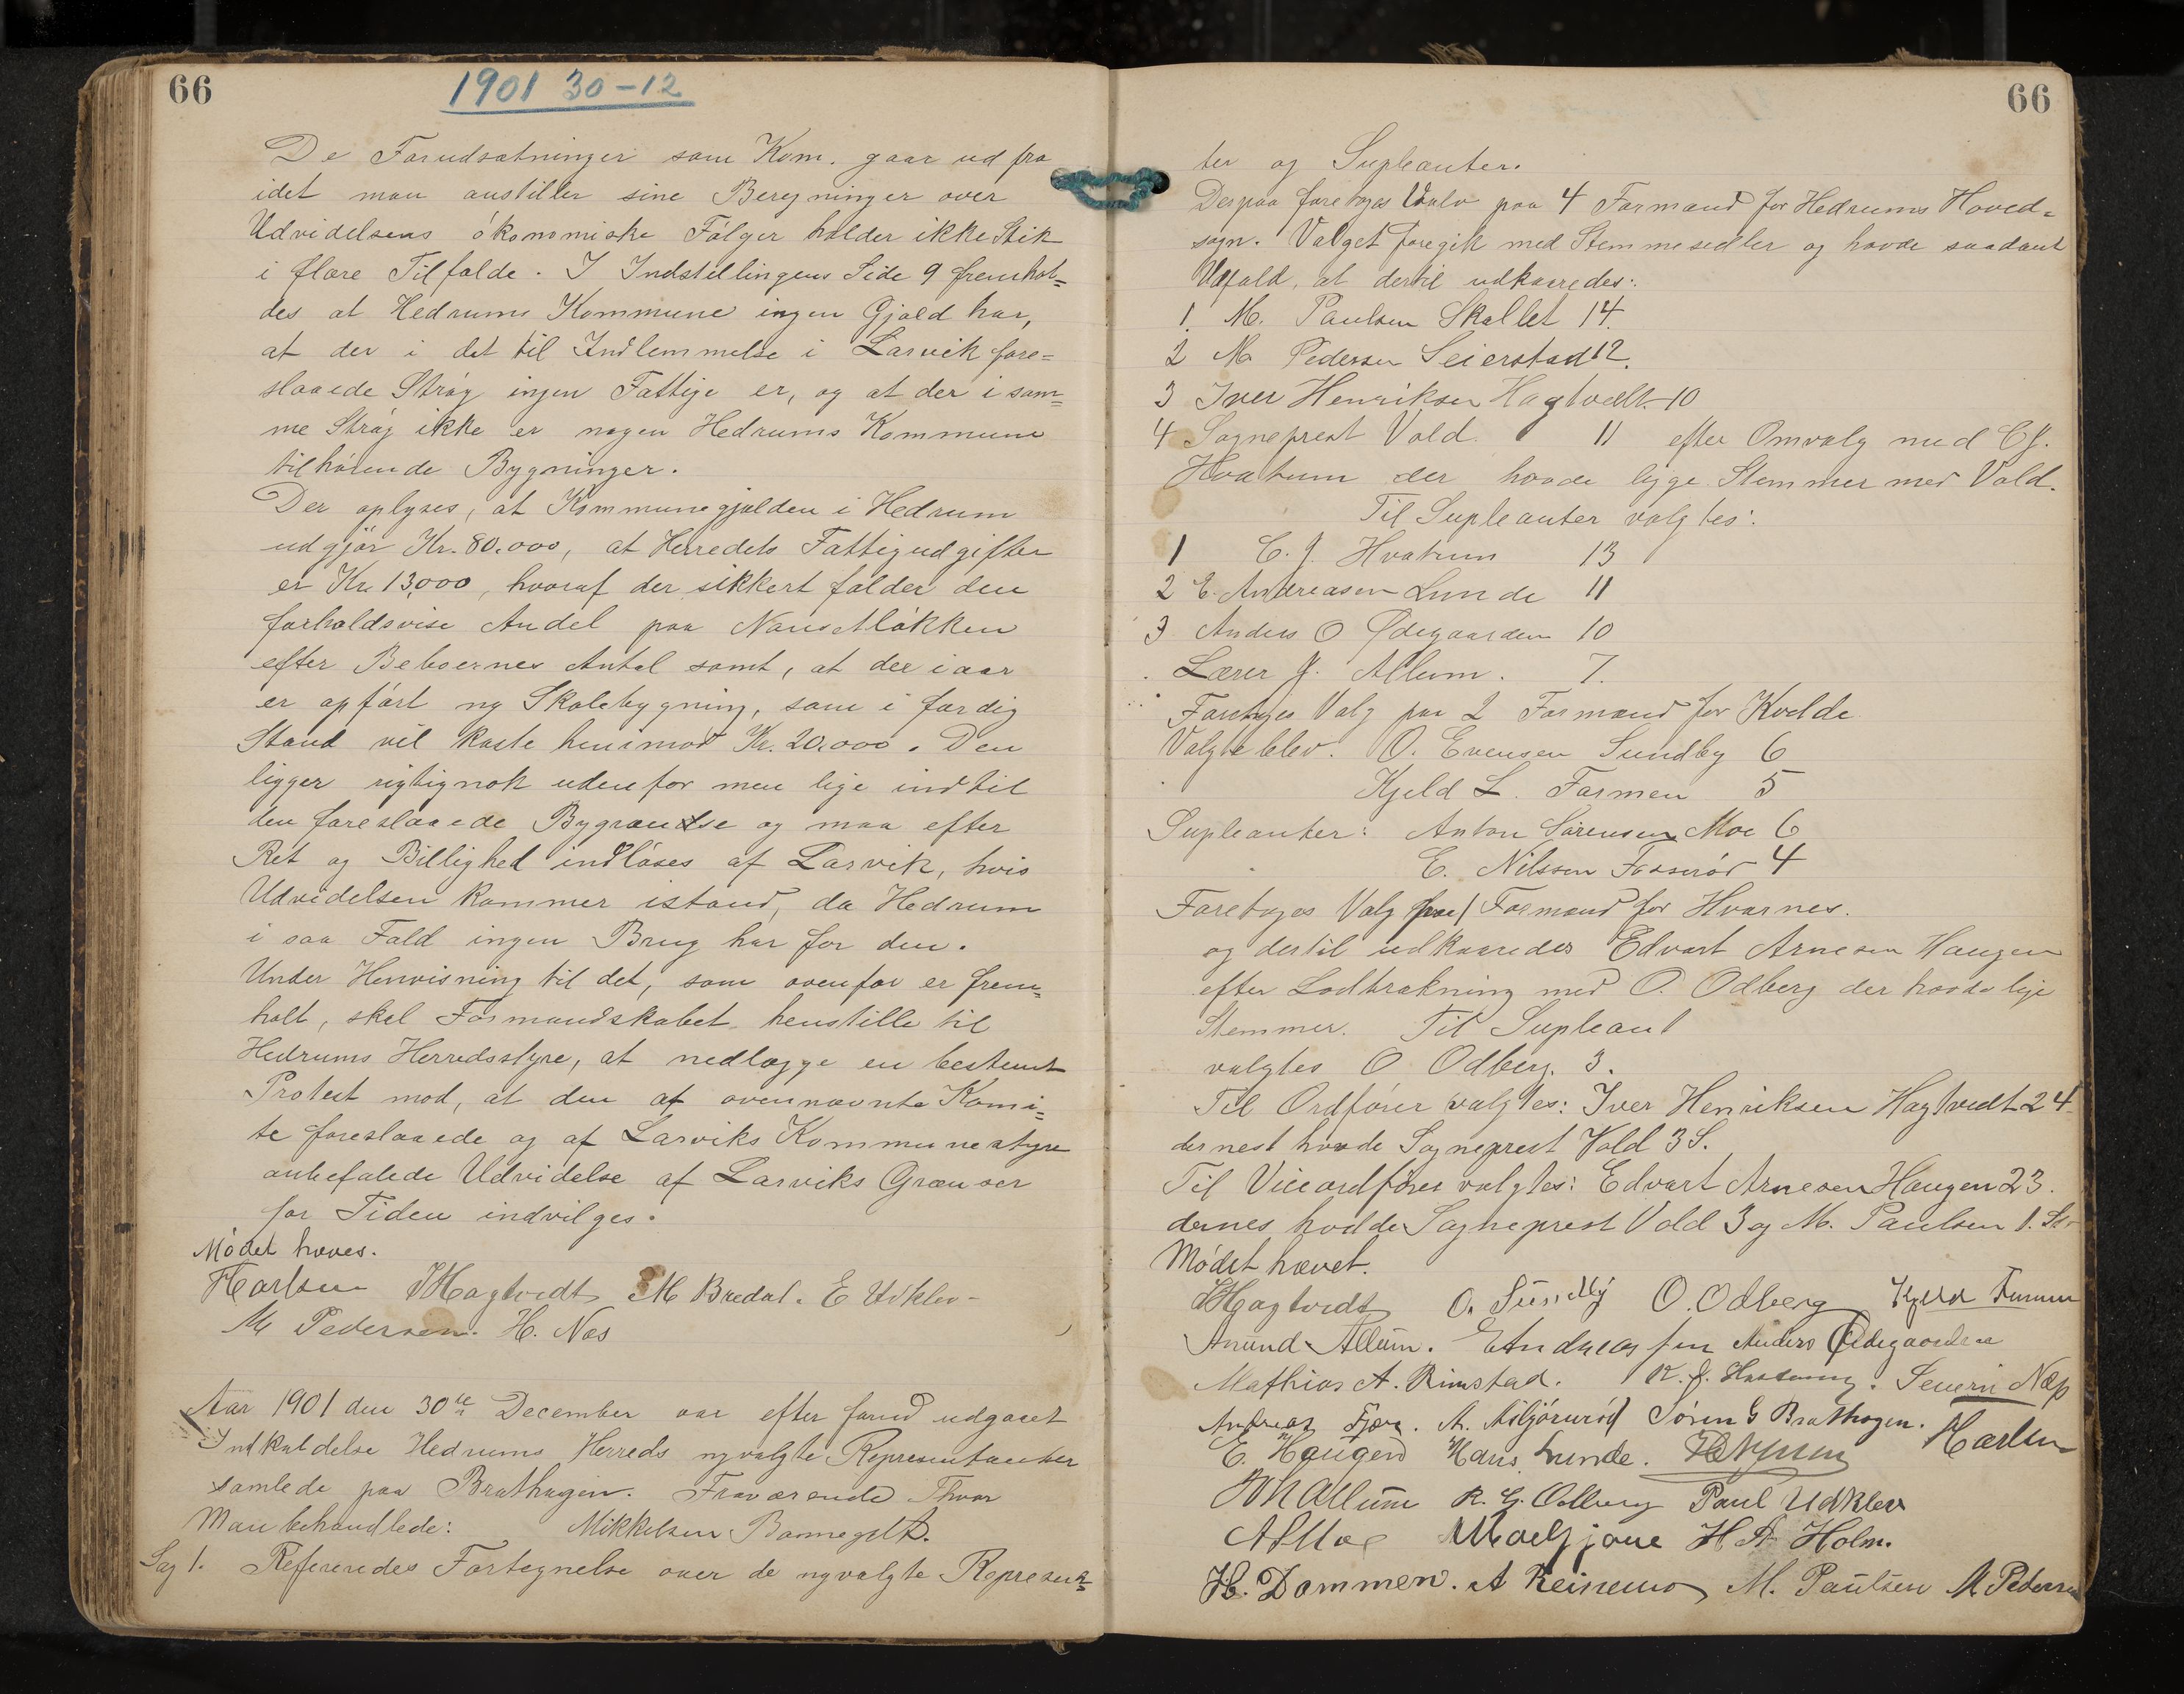 66
1901 30-12
De Forudsætninger som Kom. gaar ud fra
idet man anstiller sine Beregninger over
Udvidelsens økonomiske Følger holder ikke Stik
i flære Tilfælde. I Indstillingens Side 9 fremhol=
des at Hedrums Kommune ingen Gjæld har,
at der i det til Indlemmelse i Larvik fore=
slaaede Strøg ingen Fattige er, og at der i sam=
me Strøg ikke er nogen Hedrums Kommune
tilhørende Bygninger.
Der oplyses, at Kommunegjælden i Hedrum
udgjør Kr. 80.000, at Herredets Fattigudgifter
er Kr. 13,000, hvoraf der sikkert falder den
forholdsvise Andel paa Nansetløkken
efter Beboernes Antal samt, at der iaar
er opført ny Skolebygning, som i færdig
Stand vil koste henimod Kr. 20.000. Den
ligger rigtignok udenfor men lige indtil
den foreslaaede Bygrændse og maa efter
Ret og Billighed indløses af Larvik, hvis
Udvidelsen kommer istand, da Hedrum
i saa Fald ingen Brug har for den.
Under Henvisning til det, som ovenfor er frem=
holt, skal Formandskabet henstille til
Hedrums Herredsstyre, at nedlægge en bestemt
Protest mod, at den af ovennævnte Komi=
te foreslaaede og af Larviks Kommunestyre
anbefalede Udvidelse af Larviks Grænser
for Tiden indvilges.
Mødet hæves.
FKarlsen IHagtvedt M Bredal. E Udklev-
M Pedersen. H. Næs
Aar 1901 den 30te December var efter forud udgaaet
Indkaldelse Hedrums Herreds nyvalgte Representanter
samlede paa Brathagen. Fraværende Thor
Man behandlede: Mikkelsen Bommegdt.
Sag 1. Refereredes Fortegnelse over de nyvalgte Represen=
66
ter og Supleanter.
Derpaa foretoges Valg paa 4 Formænd for Hedrums Hoved=
sogn. Valget foregik med Stemmesedler og havde saadant
Udfald, at dertil udkaaredes:
1. M. Paulsen Skallet 14.
2 M Pedersen Seierstad 12.
3 Iver Henriksen Hagtvedt. 10
4 Sogneprest Vold. 11 efter Omvalg med C J.
Hvatum der havde ligge Stemmer med Vold.
Til Supleanter valgtes:
1 C. J. Hvatum 13
2 E. Andreasen Lunde 11
3 Anders O Ødegaarden 10
Lærer J. Allum. 7.
Foretoges Valg paa 2 Formænd for Kvelde
Valgte blev. O. Evensen Sundby 6
Kjeld L. Farmen 5
Supleanter: Anton Sørensen Moe 6
E. Nilssen Fosserød 4
Foretoges Valg paa 1 Formand for Hvarnes.
og dertil udkaaredes Edvart Arnesen Haugen
efter Lodtrækning med O. Odberg der havde lige
Stemmer. Til Supleant
valgtes O Odberg. 3.
Til Ordfører valgtes: Iver Henriksen Hagtvedt 24
dernest havde Sogneprest Vold 3 S.
Til Viceordfører valgtes: Edvart Arnesen Haugen 23.
dernes havde Sogneprest Vold 3 og M. Paulsen 1. St.
Mødet hævet.
IHagtvedt O. Sundby O. Odberg Kjeld Farmen
Anund Allum. E Andreassen Anders Ødegaarden
Mathias A. Rimstad. Severin Næs
Andreas Fjære. A. Søren G Brathagen. Karlsen
E. Haugen Hans Lunde.
Allum R. G. Odberg Paul Udklev
A S Moe H A Holm.
H. Dommen. A M. Paulsen M Pedersen